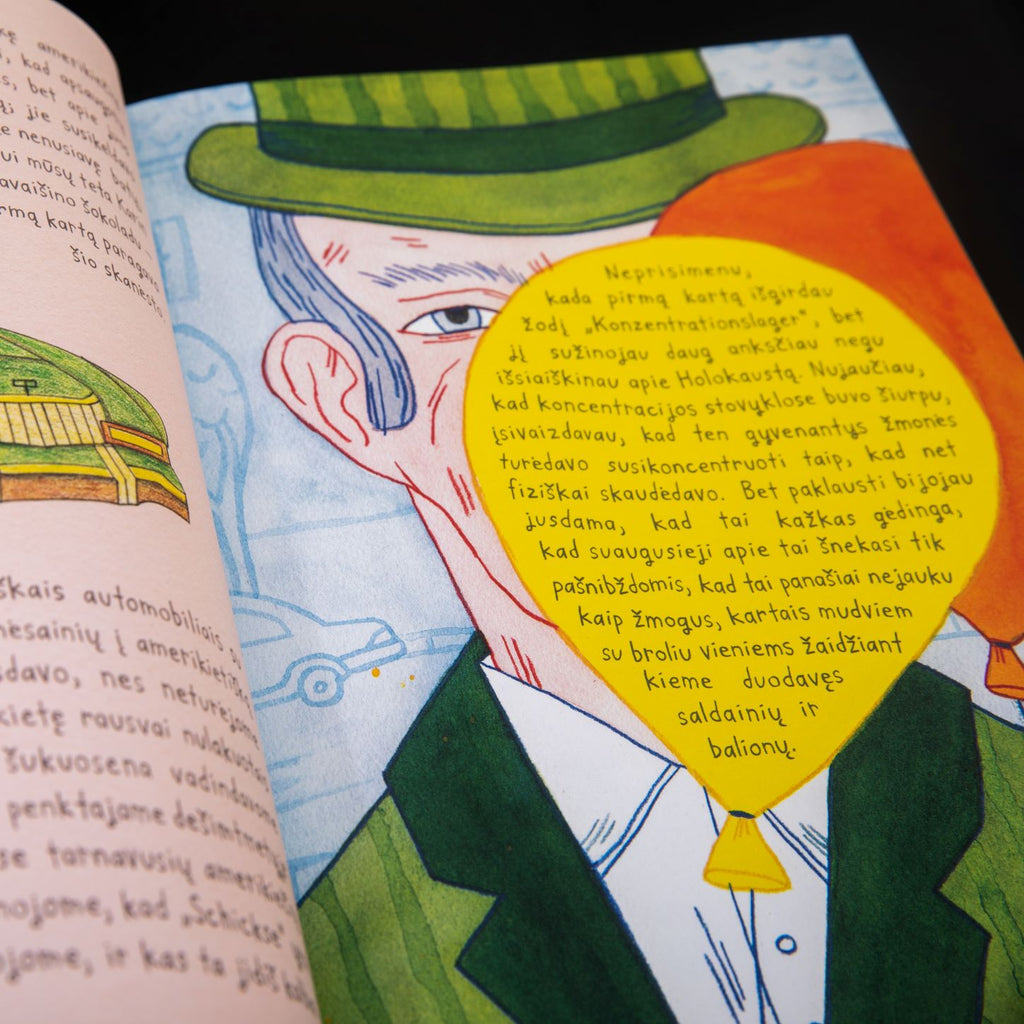 amerikieči
kad apsaugo
bet apie
jie susikeltą
nenusiavę batų
mūsų teta Karin
avaišino šokoladu
rmą kartą paragavo
šio skanėsto.
škais automobiliais su
mėsainių į amerikietiš
davo, nes neturėjome
kietę rausvai nulakuota
šukuosena vadindavome
penktajame dešimtmety
se tarnavusių amerikie
nojome, kad „Schickse"
ojome, ir kas ta jidiš kalb
Neprisimenu,
kada pirmą kartą išgirdau
žodį „Konzentrationslager", bet
jį sužinojau daug anksčiau negu
išsiaiškinau apie Holokaustą. Nujaučiau,
kad koncentracijos stovyklose buvo šiurpu,
įsivaizdavau, kad ten gyvenantys žmonės
turėdavo susikoncentruoti taip, kad net
fiziškai skaudėdavo. Bet paklausti bijojau
jusdama, kad tai kažkas gėdinga,
kad suaugusieji apie tai šnekasi tik
pašnibždomis, kad tai panašiai nejauku
kaip žmogus, kartais mudviem
su broliu vieniems žaidžiant
kieme duodavęs
saldainių ir
balionų.